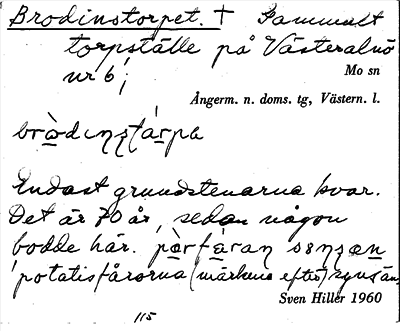 Brodinstorpet. † Gammalt
torpställe på Västeralnö
nr 6;
Mo sn
Ångerm. n. doms. tg, Västern. l.
Endast grundstenarna kvar.
Det är 70 år sedan någon
bodde här.
potatisfårorna (märkena efter) synsän
Sven Hiller 1960
115